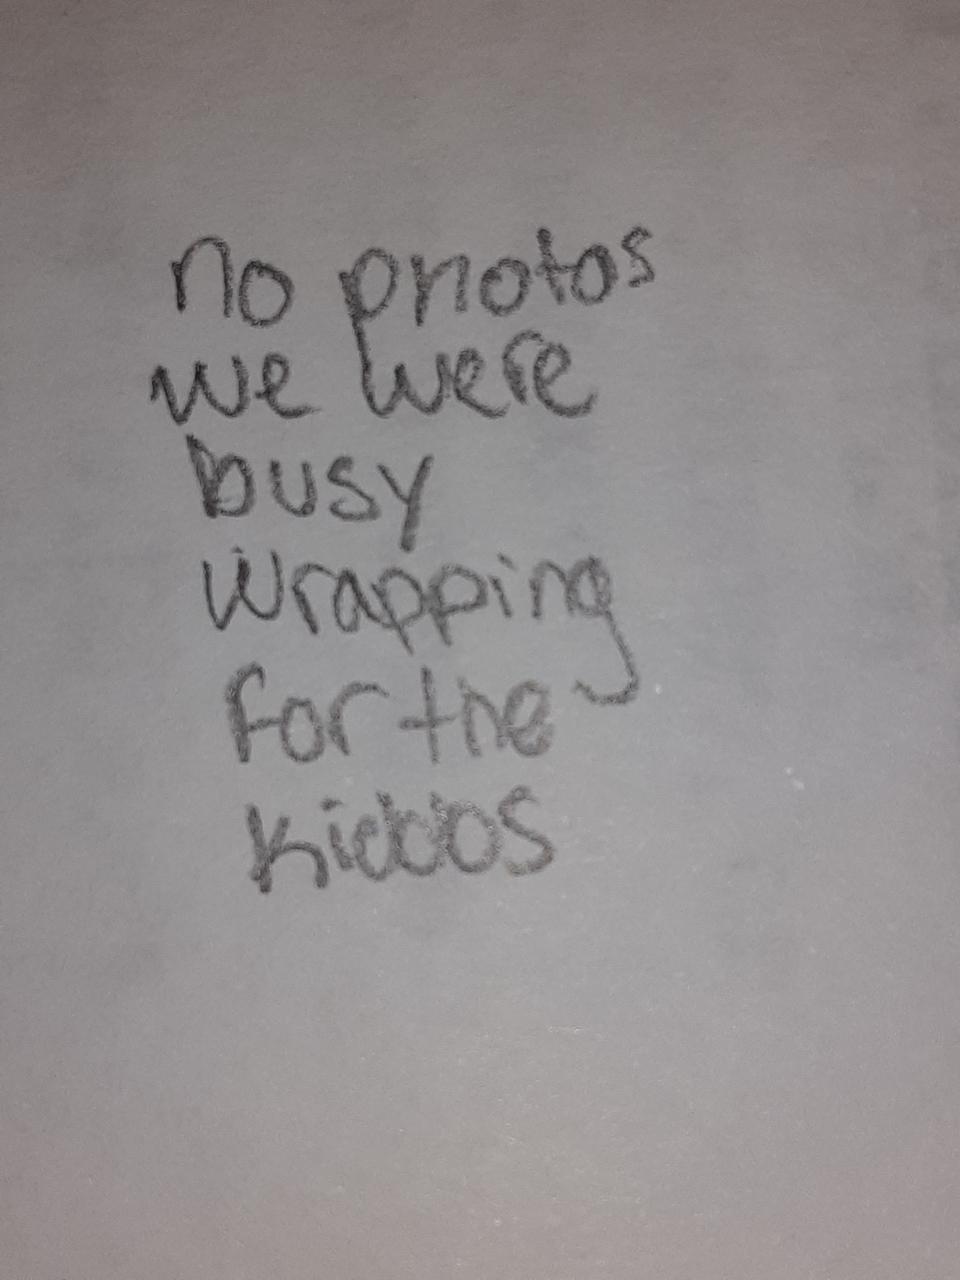 no photos
we were
busy
wrapping
for the
kiddos